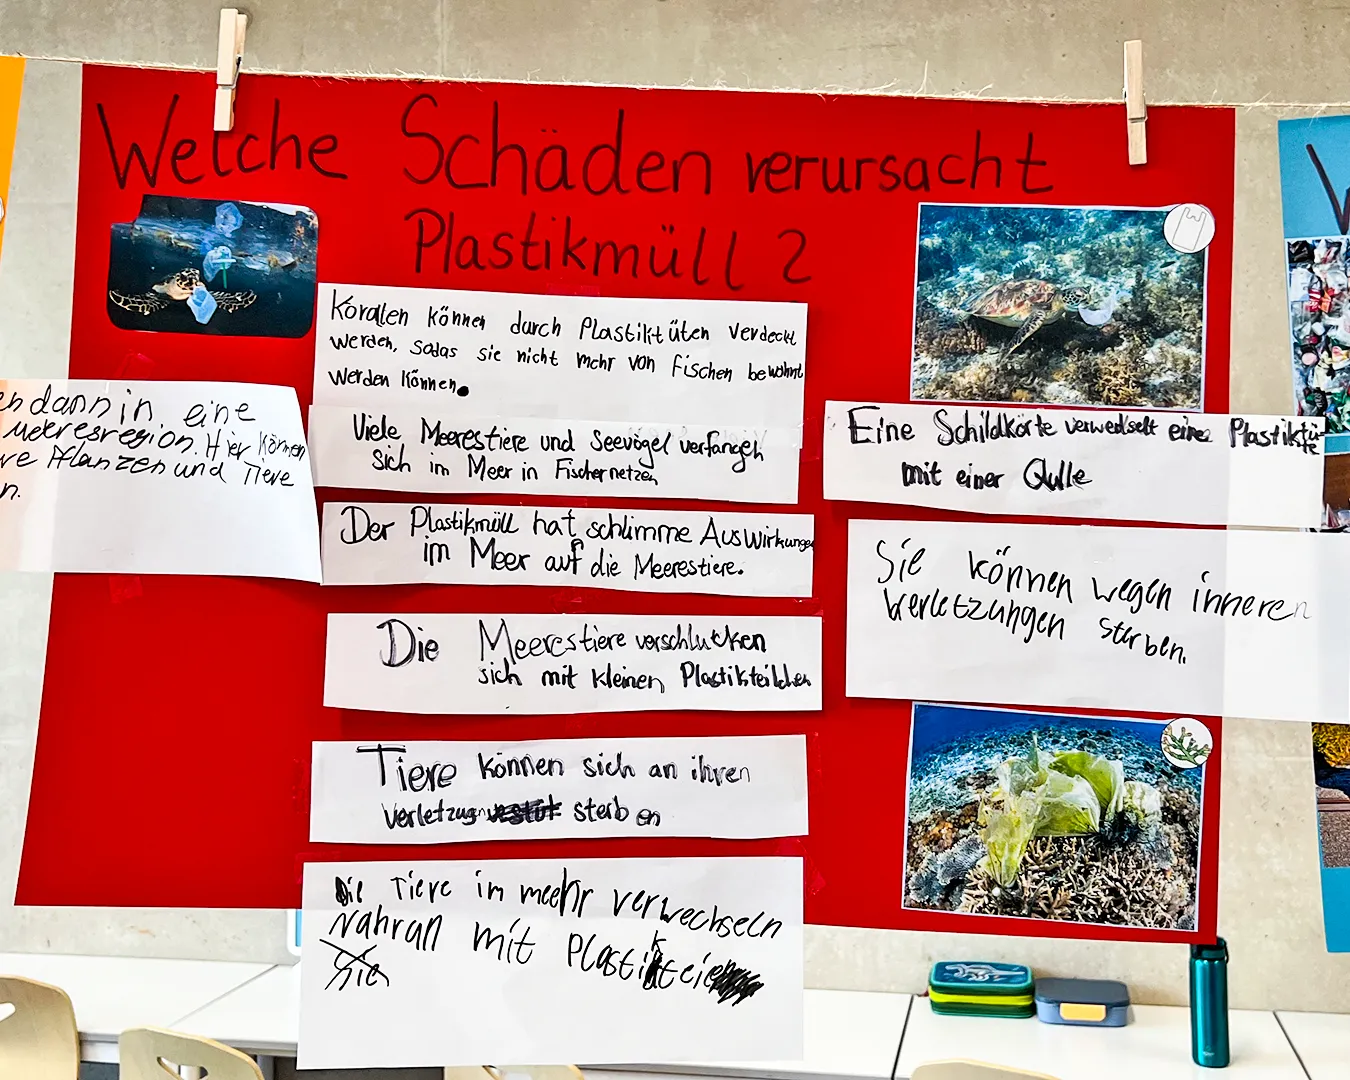 Welche Schäden verursacht
Plastikmüll ?
en dann in eine
Meeresregion. Hier können
re Pflanzen und Tiere
n.
Korallen können durch Plastiktüten verdeckt
werden, sodas sie nicht mehr von Fischen bewohnt
werden können.
Viele Meerestiere und Seevögel verfangen
sich im Meer in Fischernetzen
Der Plastikmüll hat schlimme Auswirkungen
im Meer auf die Meerestiere.
Die Meerestiere verschlucken
sich mit kleinen Plastikteilchen
Tiere können sich an ihren
verletzugn sterben
Die Tiere im meehr verwechseln
Nahran mit Plastikteie
Sie
Eine Schildkörte verwedselt eine Plastiktü-
te
mit einer Qulle
Sie können wegen inneren
Verletzungen sterben.